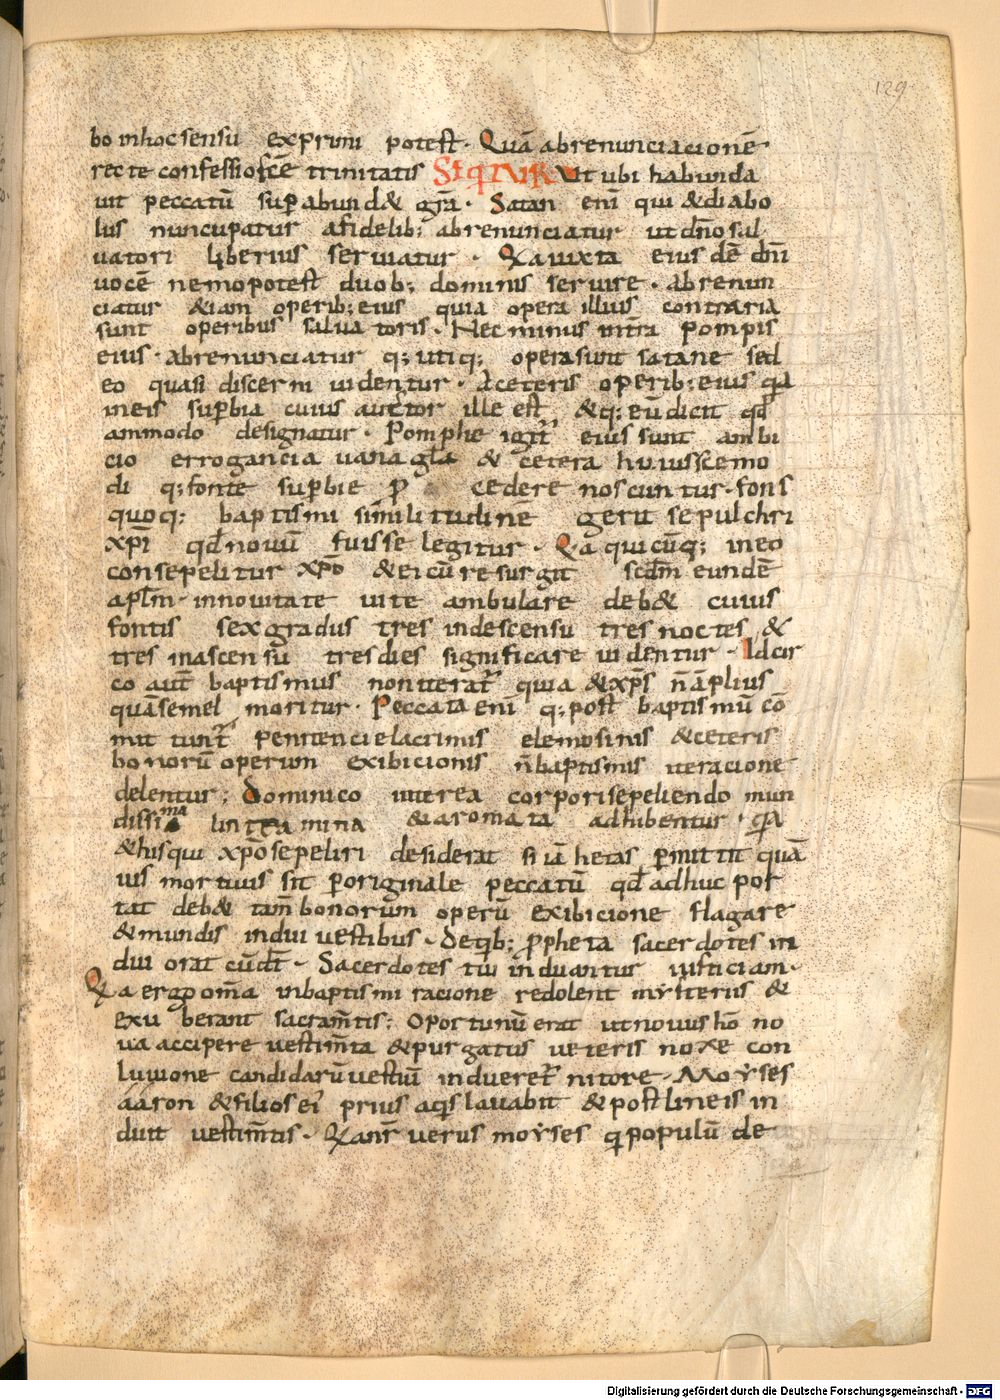 129
bo inhocsensu exprimi potest. Quā abrenunciacionē
recte confessio scē trinitatis SEQITUR Ut ubi habunda
uit peccatū supabund& grā. Satan enī qui &diabo
lus nuncupatur afidelib; abrenunciatur ut dn̄o sal
uatori liberius seruiatur. Quia iuxta eius dē dn̄i
uocē nemo potest duob; dominis seruire. abrenun
ciatur &iam operib; eius quia opera illius contraria
sunt operibus saluatoris. Nec minus int̄ra pompis
eius. abrenunciatur q; utiq; opera sunt satane sed
eo quasi discerni uidentur. Aceteris operib; eius qa
ineis supbia cuius auctor ille est &q; eūdicit qd
ammodo designatur. Pomphe igit̄ eius sunt ambi
cio errogancia uana gl̄a & cetera huiuscemo
di q; fonte supbie p cedere noscuntur. fons
quoq; baptismi similitudinē gerit sepulchri
xp̄i qd nouū fuisse legitur. Qa quicūq; ineo
consepelitur xp̄o &eicū resurgit scdm eundē
aplm. innouitate uite ambulare deb& cuius
fontis sex gradus tres indescensu tres noctes &
tres inascensu tres dies significare uidentur. Idcir
co aut̄ baptismus non iterat̄ quia &xp̄s n̄ aplius
quā semel moritur. Peccata enī q; post baptismū cō
mittunt̄ penitencie lacrimis elemosinis &ceteris
bonorū operum exibicionis n̄ baptismis iteracione
delentur; Dominico interea corpori sepeliendo mun
dissima linteamina &aromata adhibentur. qa
&his qui xp̄o sepeliri desiderat si iā hetas pmittit quā
uis mortuus sit poriginale peccatū qd adhuc por
tat deb& tam̄ bonorum operū exibicione flagare
&mundis indui uestibus. Deqib; ppheta sacerdotes in
dui orat cū dt̄. Sacerdotes tui induantur iusticiam.
Qa ergo om̄a inbaptismi racione redolent mysteriis &
exuberant sacram̄tis; Oportunū erat ut nouus hō no
ua accipere uestim̄ta &purgatus ueteris noxe con
luuione candidarū uestiū indueret̄ nitore. Moyses
aaron &filios ei' prius aqis lauabit &post lineis in
duit uestim̄tis. Qa nr̄ uerus moyses q populū de
Digitalisierung gefördert durch die Deutsche Forschungsgemeinschaft - DFG